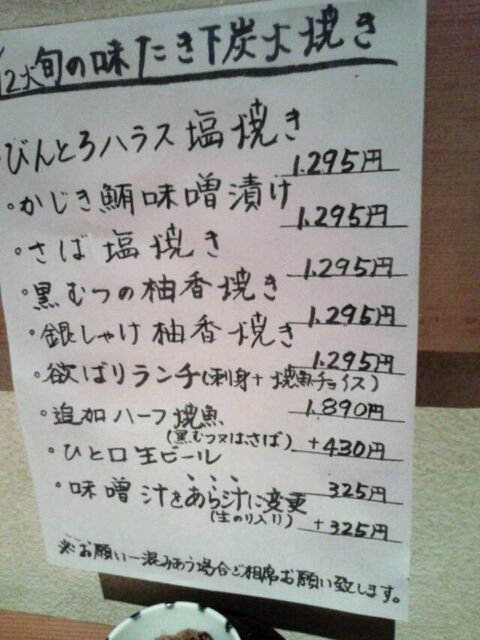 12火旬の味たき下炭火焼き
・びんとろハラス塩焼き 1.295円
・かじき鮪味噌漬け 1.295円
・さば塩焼き 1.295円
・黒むつの柚香焼き 1.295円
・銀しゃけ柚香焼き 1.295円
・欲ばりランチ(刺身+焼魚チョイス) 1.890円
・追加ハーフ焼魚
(黒むつ又はさば) +430円
・ひと口生ビール 325円
・味噌汁をあら汁に変更
(生のり入り) +325円
※お願い―混みあう場合ご相席お願い致します。